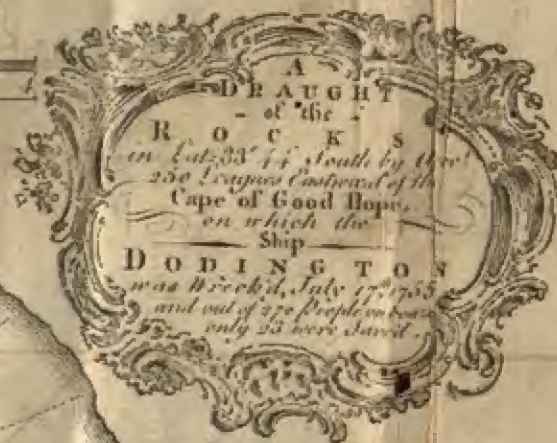 A
DRAUGHT
of the
ROCKS
in Lat. 33° 44' South, by
250 Leagues Eastward of the
Cape of Good Hope,
on which the
Ship
DODINGTON
was Wreck'd, July 17th 1755
and out of 270 People on board
only 23 were Saved.